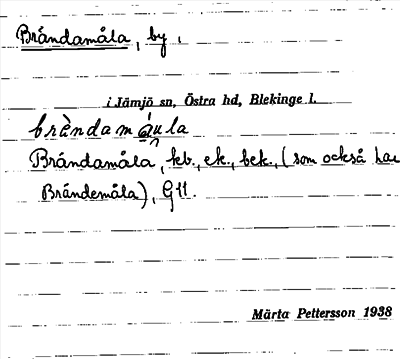 Brändamåla, by.
i Jämjö sn, Östra hd, Blekinge l.
Brändamåla, kb., ek., bek., (som också har
Brändemåla), GU.
Märta Pettersson 1938